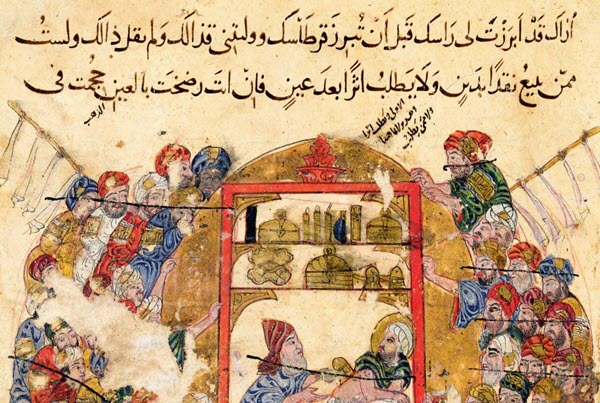 اراك قَدْ ابرزتَ لى راسك قبل اَنْ تُبرز قرطاسك ووليتنى قذالك ولم تقل ذالك ولست
ممن يبيع نقدًا بدَينٍ ولا يطلب اثرًا بعد عينٍ فان انت رضخت بالعين حجمت فى
الذهب